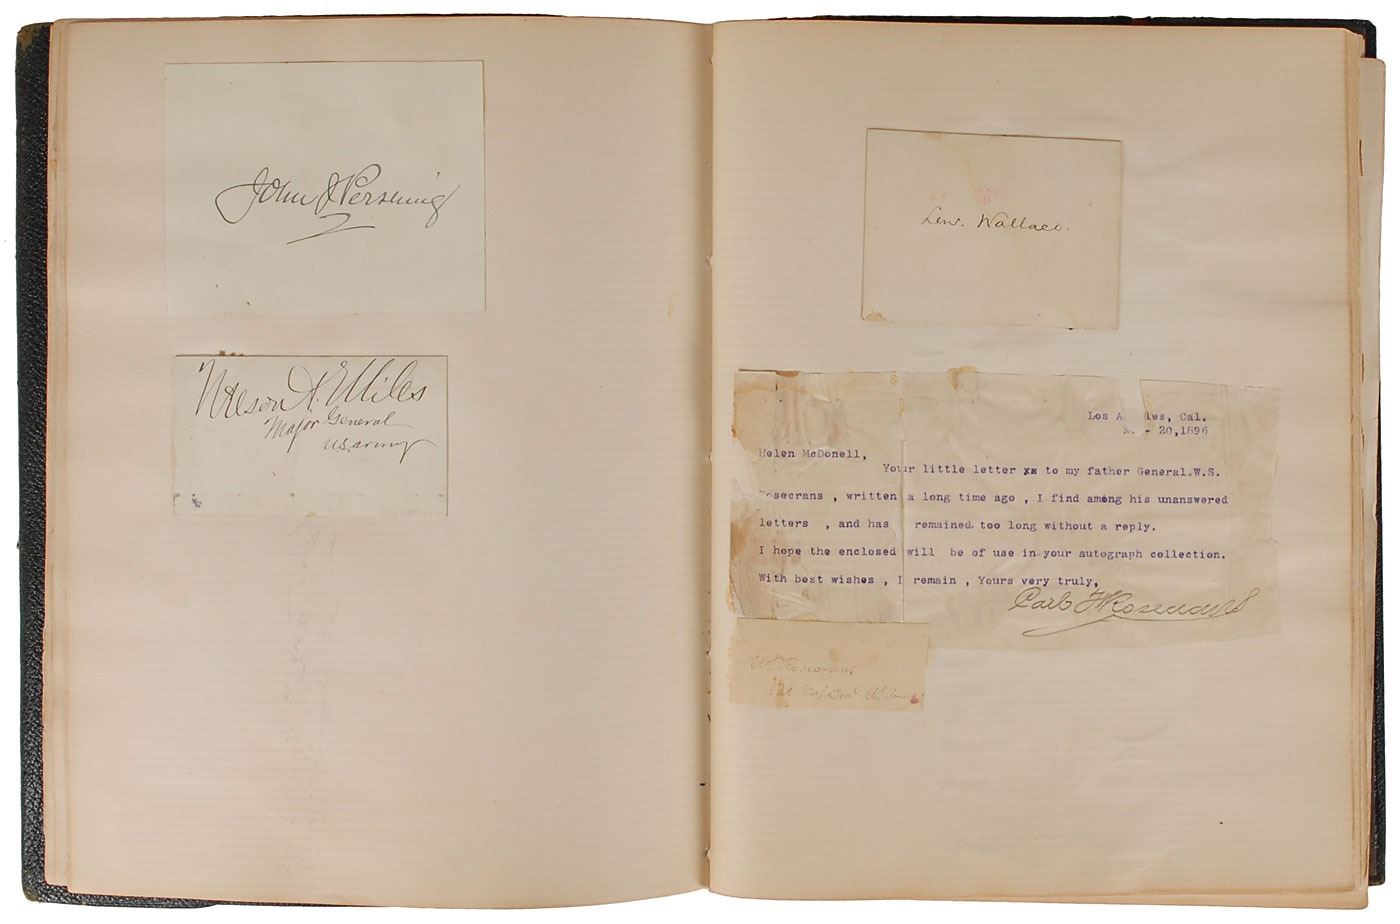 John J Pershing
Nelson A. Miles
Major General
U.S. Army
Lew. Wallace.
Los A les, Cal.
- 20,1896
Helen McDonell,
Your little letter xx to my father General.W.S.
osecrans , written a long time ago , I find among his unanswered
letters , and has remained too long without a reply.
I hope the enclosed will be of use in your autograph collection.
With best wishes , I remain , Yours very truly,
Carl F Rosecrans
W S Rosecrans
Maj. Genl U.S. Army